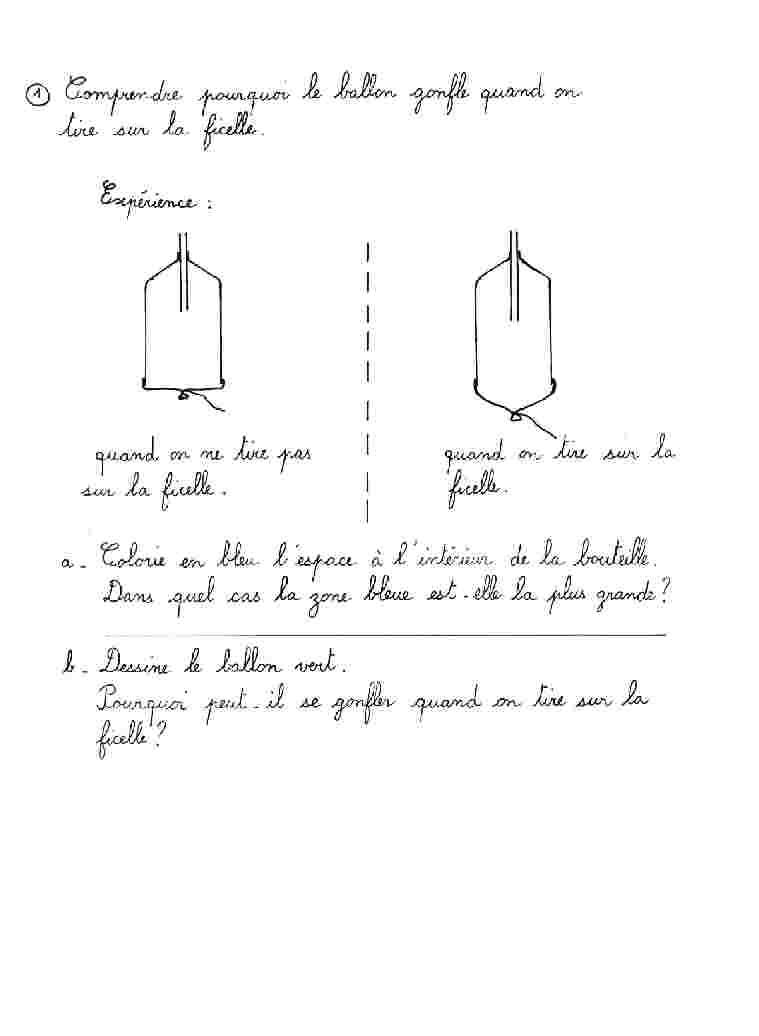 1 Comprendre pourquoi le ballon gonfle quand on
tire sur la ficelle.
Expérience :
quand on ne tire pas
sur la ficelle.
quand on tire sur la
ficelle.
a - Colorie en bleu l'espace à l'intérieur de la bouteille.
Dans quel cas la zone bleue est-elle la plus grande ?
b - Dessine le ballon vert.
Pourquoi peut-il se gonfler quand on tire sur la
ficelle ?